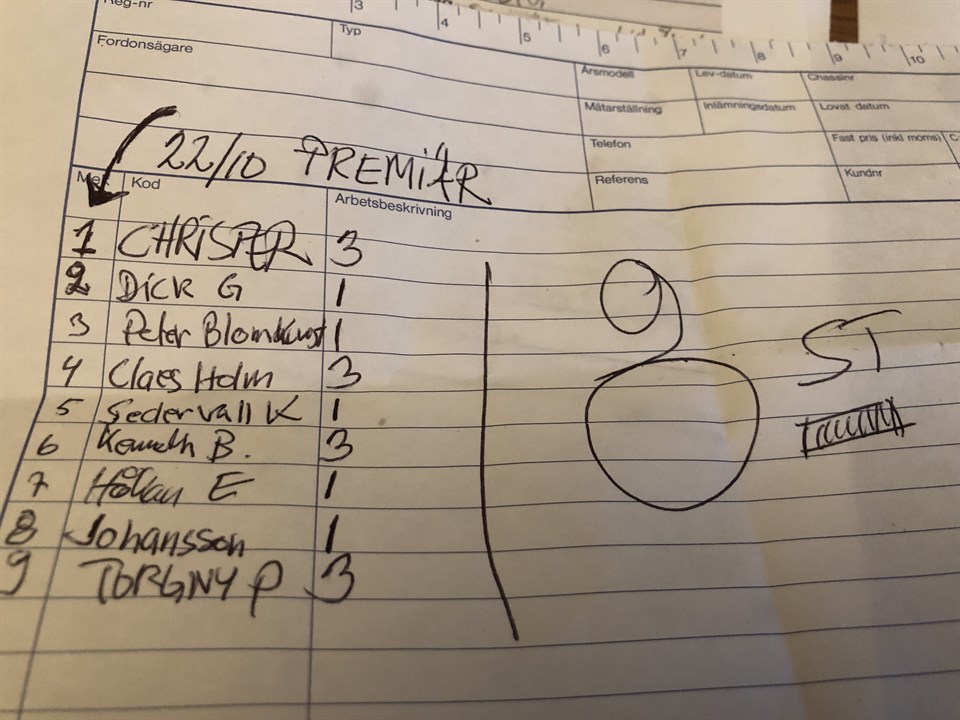 Reg-nr
3 4 5 6 7 8 9 10
Fordonsägare Typ
Årsmodell Lev-datum Chassinr
Mätarställning Inlämningsdatum Lovat datum
Telefon Fast pris (inkl moms)
Referens Kundnr
22/10 PREMIÄR
Mek Kod Arbetsbeskrivning
1 CHRISTER 3
2 DICK G 1
3 Peter Blomkvist 1
4 Claes Holm 3
5 Sedervall K 1
6 Kenneth B. 3
7 Håkan E 1
8 Johansson 1
9 TORGNY P 3
9 ST